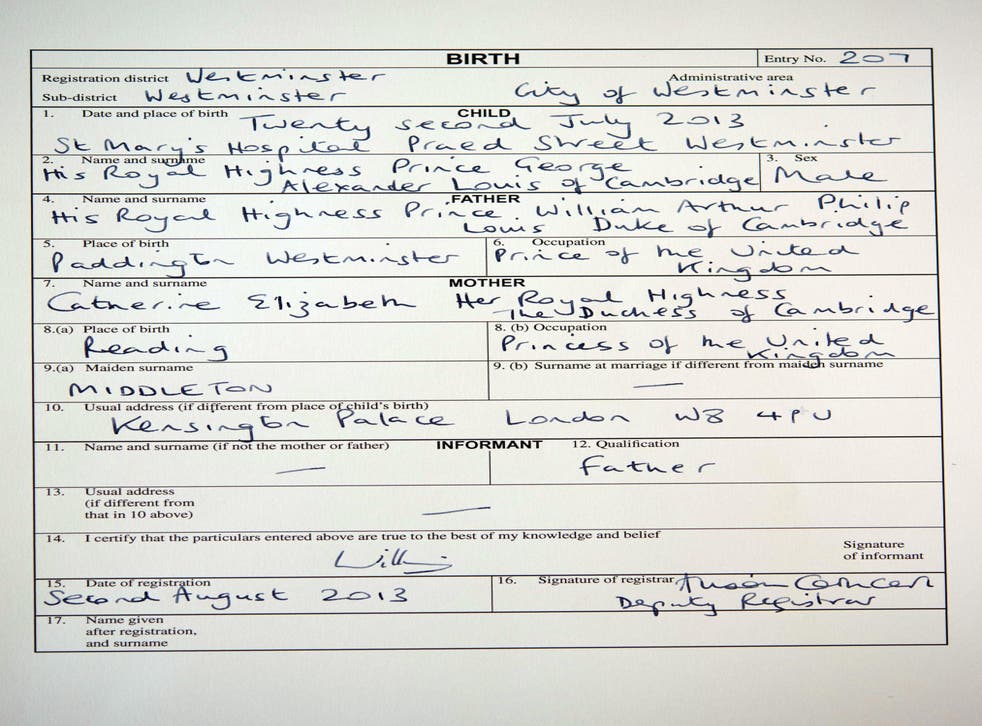 BIRTH
Entry No. 207
Registration district Westminster
Administrative area
Sub-district Westminster
City of Westminster
1. Date and place of birth
CHILD
Twenty second July 2013
St Mary's Hospital Praed Street Westminster
2. Name and surname
3. Sex
His Royal Highness Prince George
Alexander Louis of Cambridge
Male
4. Name and surname
FATHER
His Royal Highness Prince William Arthur Philip
Louis Duke of Cambridge
5. Place of birth
Paddington Westminster
6. Occupation
Prince of the United
Kingdom
7. Name and surname
MOTHER
Catherine Elizabeth Her Royal Highness
The Duchess of Cambridge
8.(a) Place of birth
Reading
8. (b) Occupation
Princess of the United
Kingdom
9.(a) Maiden surname
MIDDLETON
9. (b) Surname at marriage if different from maiden surname
—
10. Usual address (if different from place of child's birth)
Kensington Palace London W8 4PU
11. Name and surname (if not the mother or father)
INFORMANT
—
12. Qualification
Father
13. Usual address
(if different from
that in 10 above)
—
14. I certify that the particulars entered above are true to the best of my knowledge and belief
Signature
of informant
15. Date of registration
Second August 2013
16. Signature of registrar
Deputy Registrar
17. Name given
after registration,
and surname